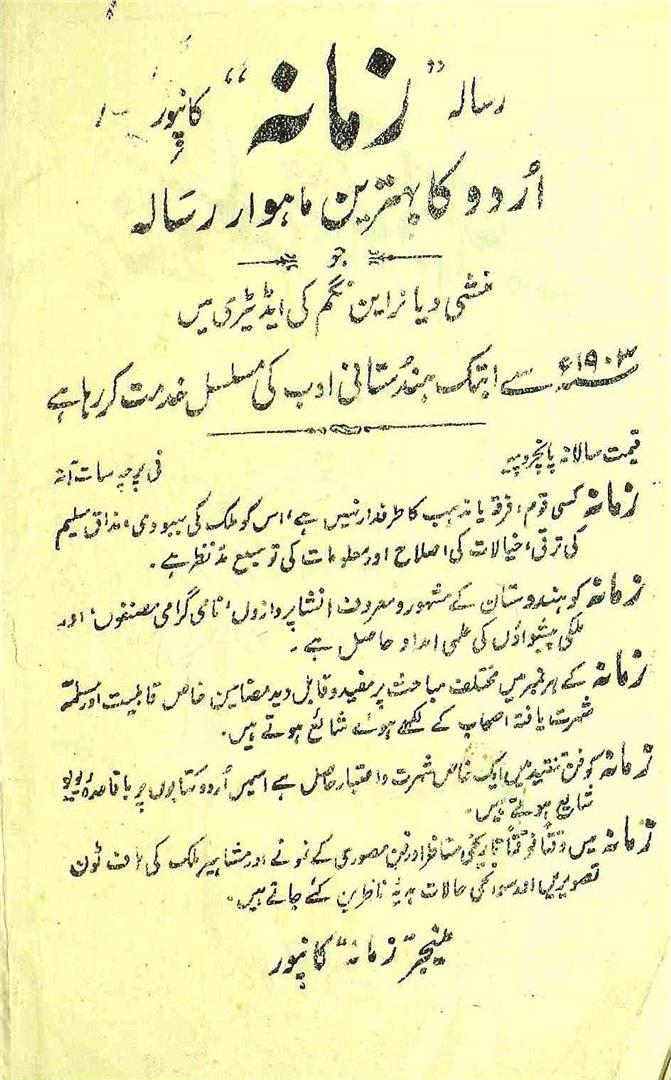 رسالہ "زمانہ" کانپور
اُردو کا بہترین ماہوار رسالہ
جو
منشی دیا نراین نگم کی ایڈیٹری میں
۱۹۰۳ء سے ابتک ہندُستانی ادب کی مسلسل خدمت کر رہا ہے
قیمت سالانہ پانچروپیہ فی پرچہ سات آنہ
زمانہ کسی قوم، فرقہ یا مذہب کا طرفدار نہیں ہے، اس کو ملک کی بہبودی، مذاق سلیم
کی ترقی، خیالات کی اصلاح اور معلومات کی توسیع مدِّنظر ہے۔
زمانہ کو ہندوستان کے مشہور و معروف انشا پردازوں، نامی گرامی مصنفوں، اور
ملکی پیشواؤں کی علمی امداد حاصل ہے۔
زمانہ کے ہر نمبر میں مختلف مباحث پر مفید و قابل دید مضامین خاص قابلیت اور مسلمہ
شہرت یافتہ اصحاب کے لکھے ہوئے شائع ہوتے ہیں۔
زمانہ کو فن تنقید میں ایک خاص شہرت و اعتبار حاصل ہے اسمیں اُردو کتابوں پر باقاعدہ ریویو
شایع ہوتے ہیں۔
زمانہ میں وقتاً فوقتاً تاریخی مناظر اور فن مصوری کے نمونے اور مشاہیر ملک کی ہاف ٹون
تصویریں اور سوانحی حالات ہدیۂ ناظرین کئے جاتے ہیں۔
منیجر "زمانہ" کانپور